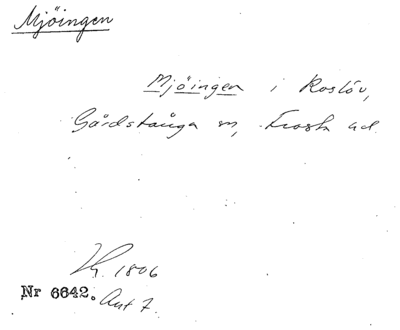 Mjöingen
Mjöingen i Roslöv,
Gårdstånga sn, Frosta hd.
1806
Nr 6642. Ant 7.